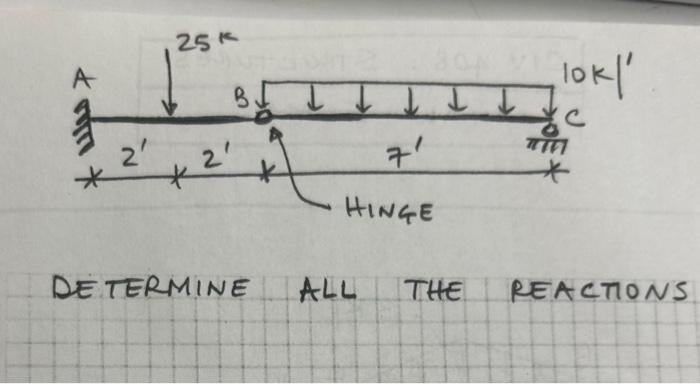 25K
A
B
10K/'
C
2'
2'
7'
HINGE
DETERMINE ALL THE REACTIONS